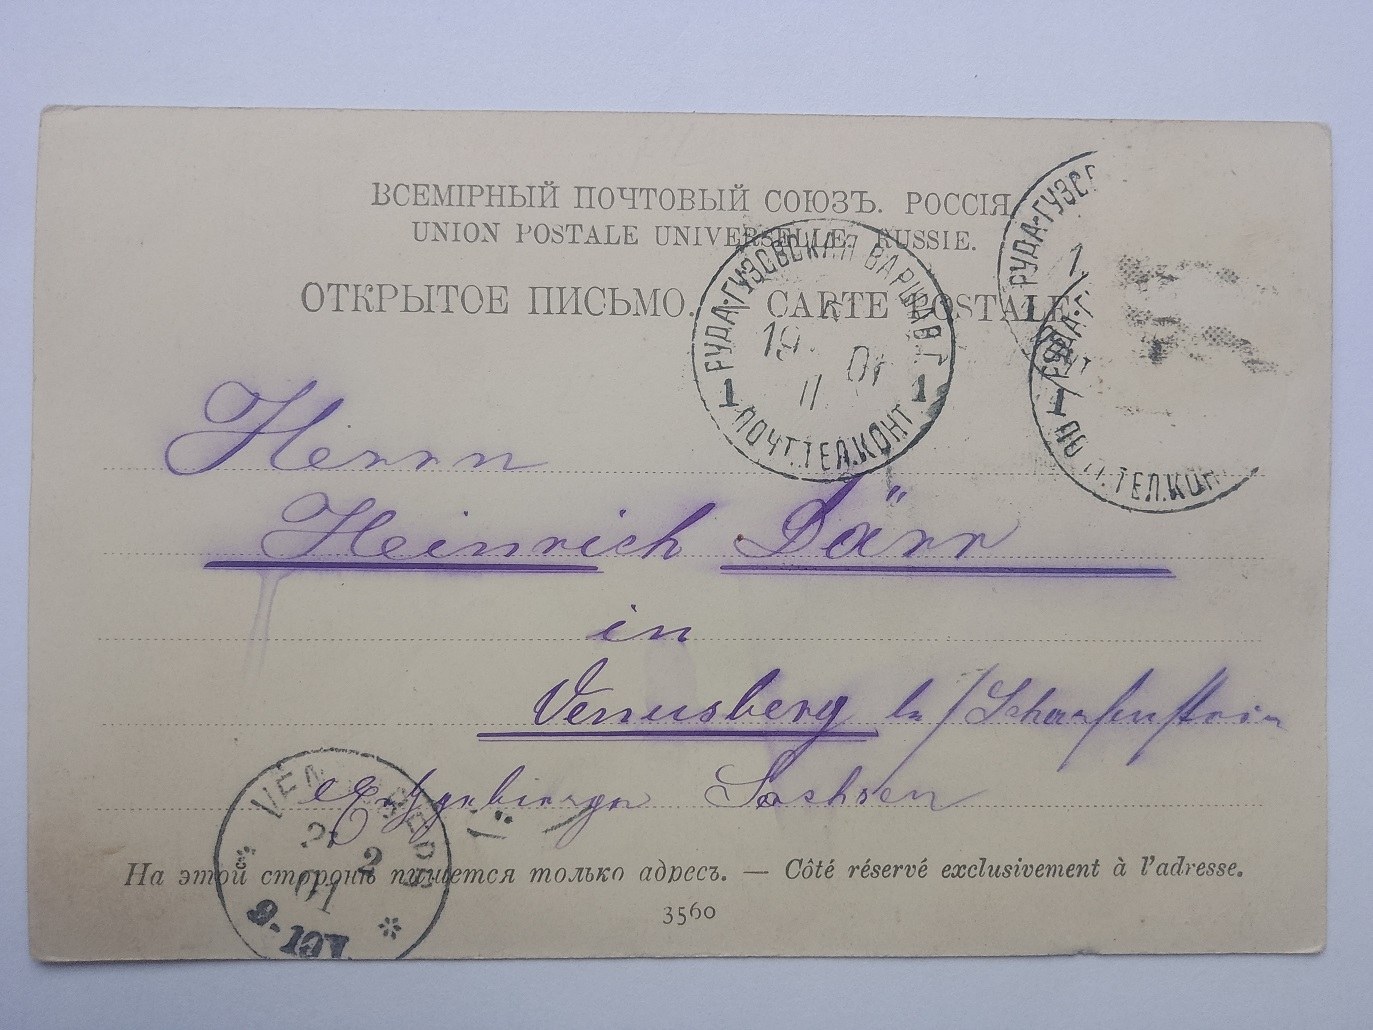 ВСЕМІРНЫЙ ПОЧТОВЫЙ СОЮЗЪ. РОССІЯ
UNION POSTALE UNIVERSELLE. RUSSIE.
ОТКРЫТОЕ ПИСЬМО. CARTE POSTALE
РУДА-ГУЗОВСКАЯ ВАРШАВ.Г.
19 01
II
1 1
ПОЧТ.ТЕЛ.КОНТ
РУДА-ГУЗО
1
1
ТЕЛ.КОН
Herrn
Heinrich Därr
in
Venusberg b/Scharfenstein
Erzgebirge Sachsen
VEN BERG
2
01
9-10V
На этой сторонѣ пишется только адресъ. — Côté réservé exclusivement à l'adresse.
3560